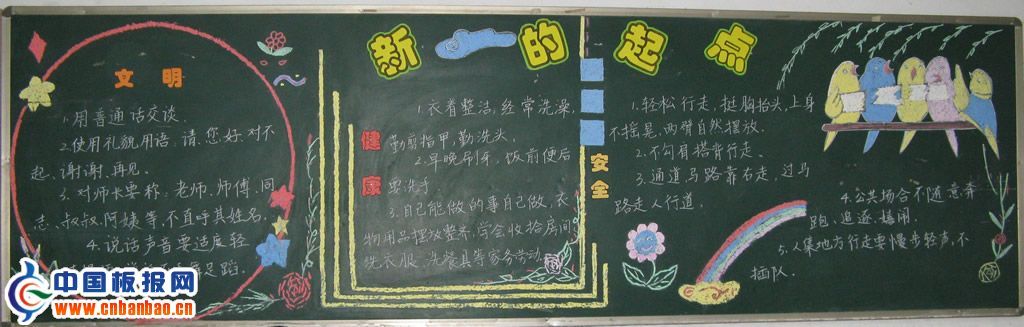 新的起点
文明
1.用普通话交谈.
2.使用礼貌用语,请、您好、对不
起、谢谢、再见.
3.对师长要称:老师、师傅、同
志、叔叔、阿姨等,不直呼其姓名.
4.说话声音要适度轻
足蹈.
健康
1.衣着整洁,经常洗澡,
勤剪指甲,勤洗头.
2.早晚刷牙,饭前便后
要洗手
3.自己能做的事自己做,衣
物用品摆放整齐,学会收拾房间
洗衣服、洗餐具等家务劳动.
安全
1.轻松行走,挺胸抬头,上身
不摇晃,两臂自然摆放.
2.不勾肩搭背行走、
3.通道马路靠右走,过马
路走人行道.
4.公共场合不随意奔
跑、追逐、
5.人集地方行走要慢步轻声,不
插队.
中国板报网
www.cnbanbao.cn